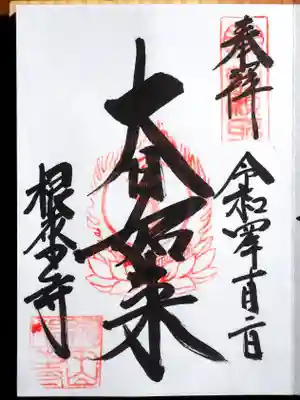 奉拝
令和四年十月二日
大日如来
根來寺